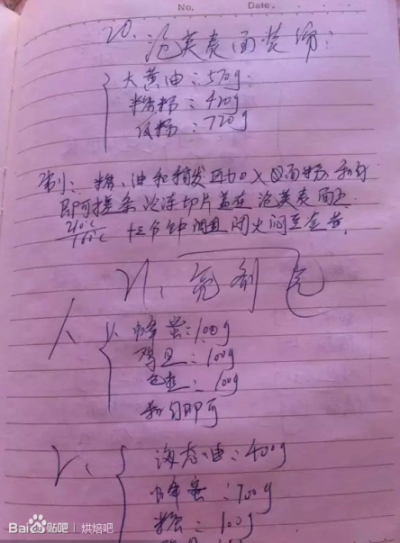 No.
Date.
20、泡芙表面装饰：
大黄油：570g
糖粉：420g
低粉：720g
制：糖、油和稍发 加入 面粉、和匀
即可搓条冷冻切片盖在泡芙表面上
210℃/160℃ 十三分钟调 闭火闷至金黄。
21、亮剂
1、蜂蜜：100g
鸡旦：100g
：100g
和匀即可
2、
油：400g
蜂蜜：700g
糖：100g
Baidu贴吧 | 烘焙吧